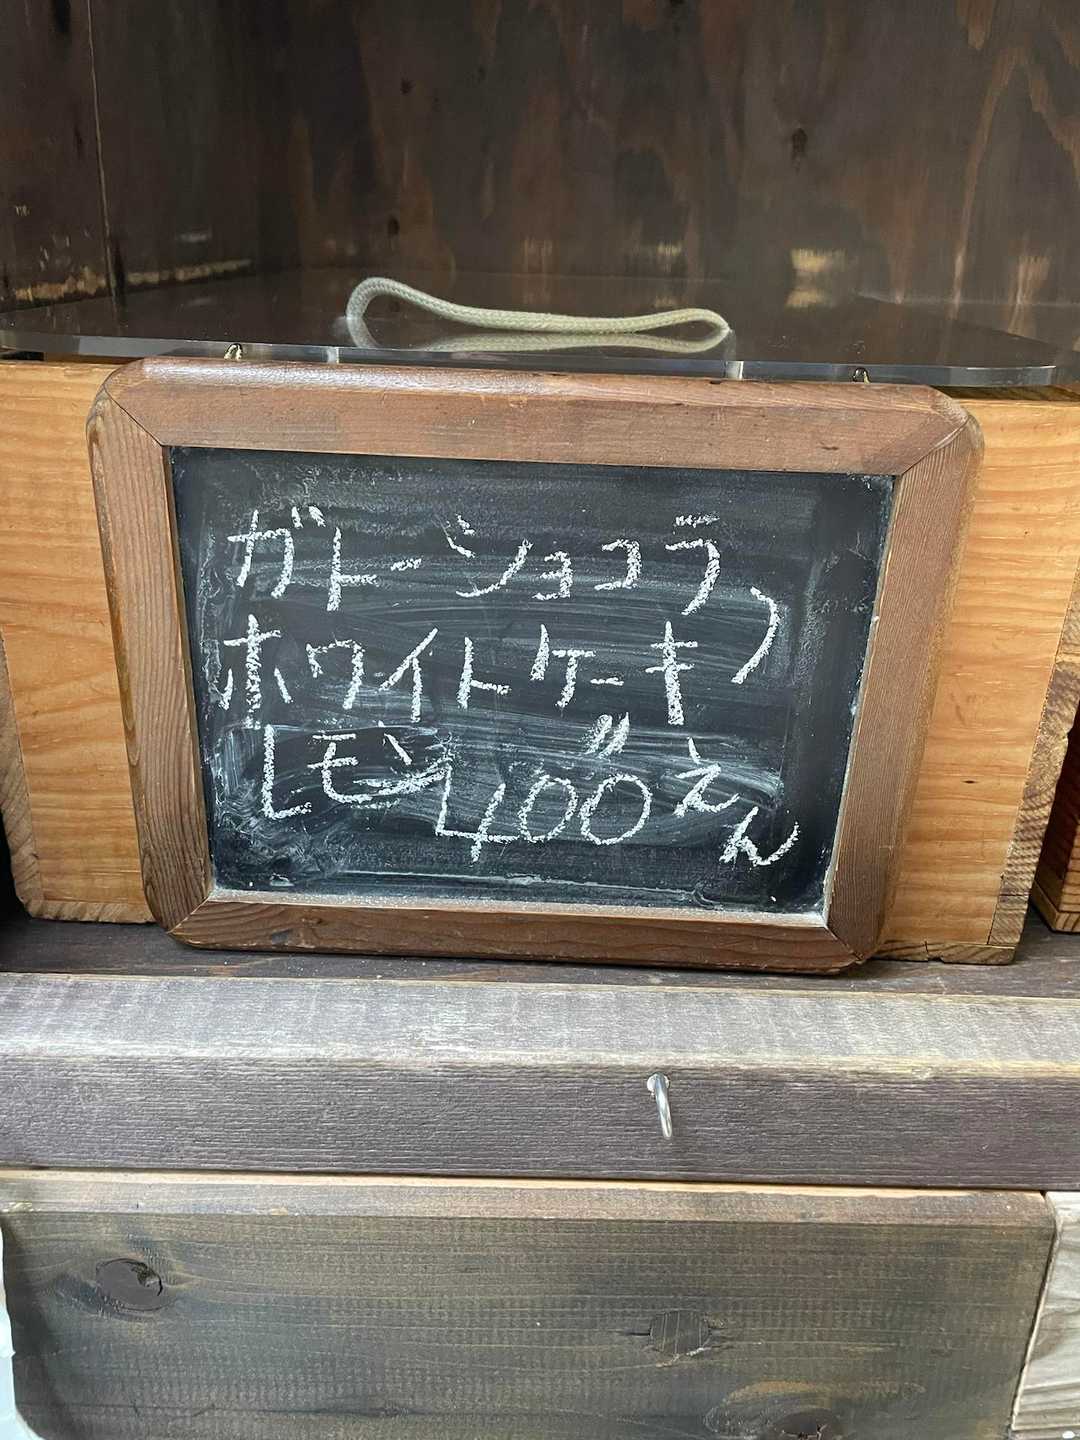 ガトーショコラ
ホワイトケーキ
レモン400えん